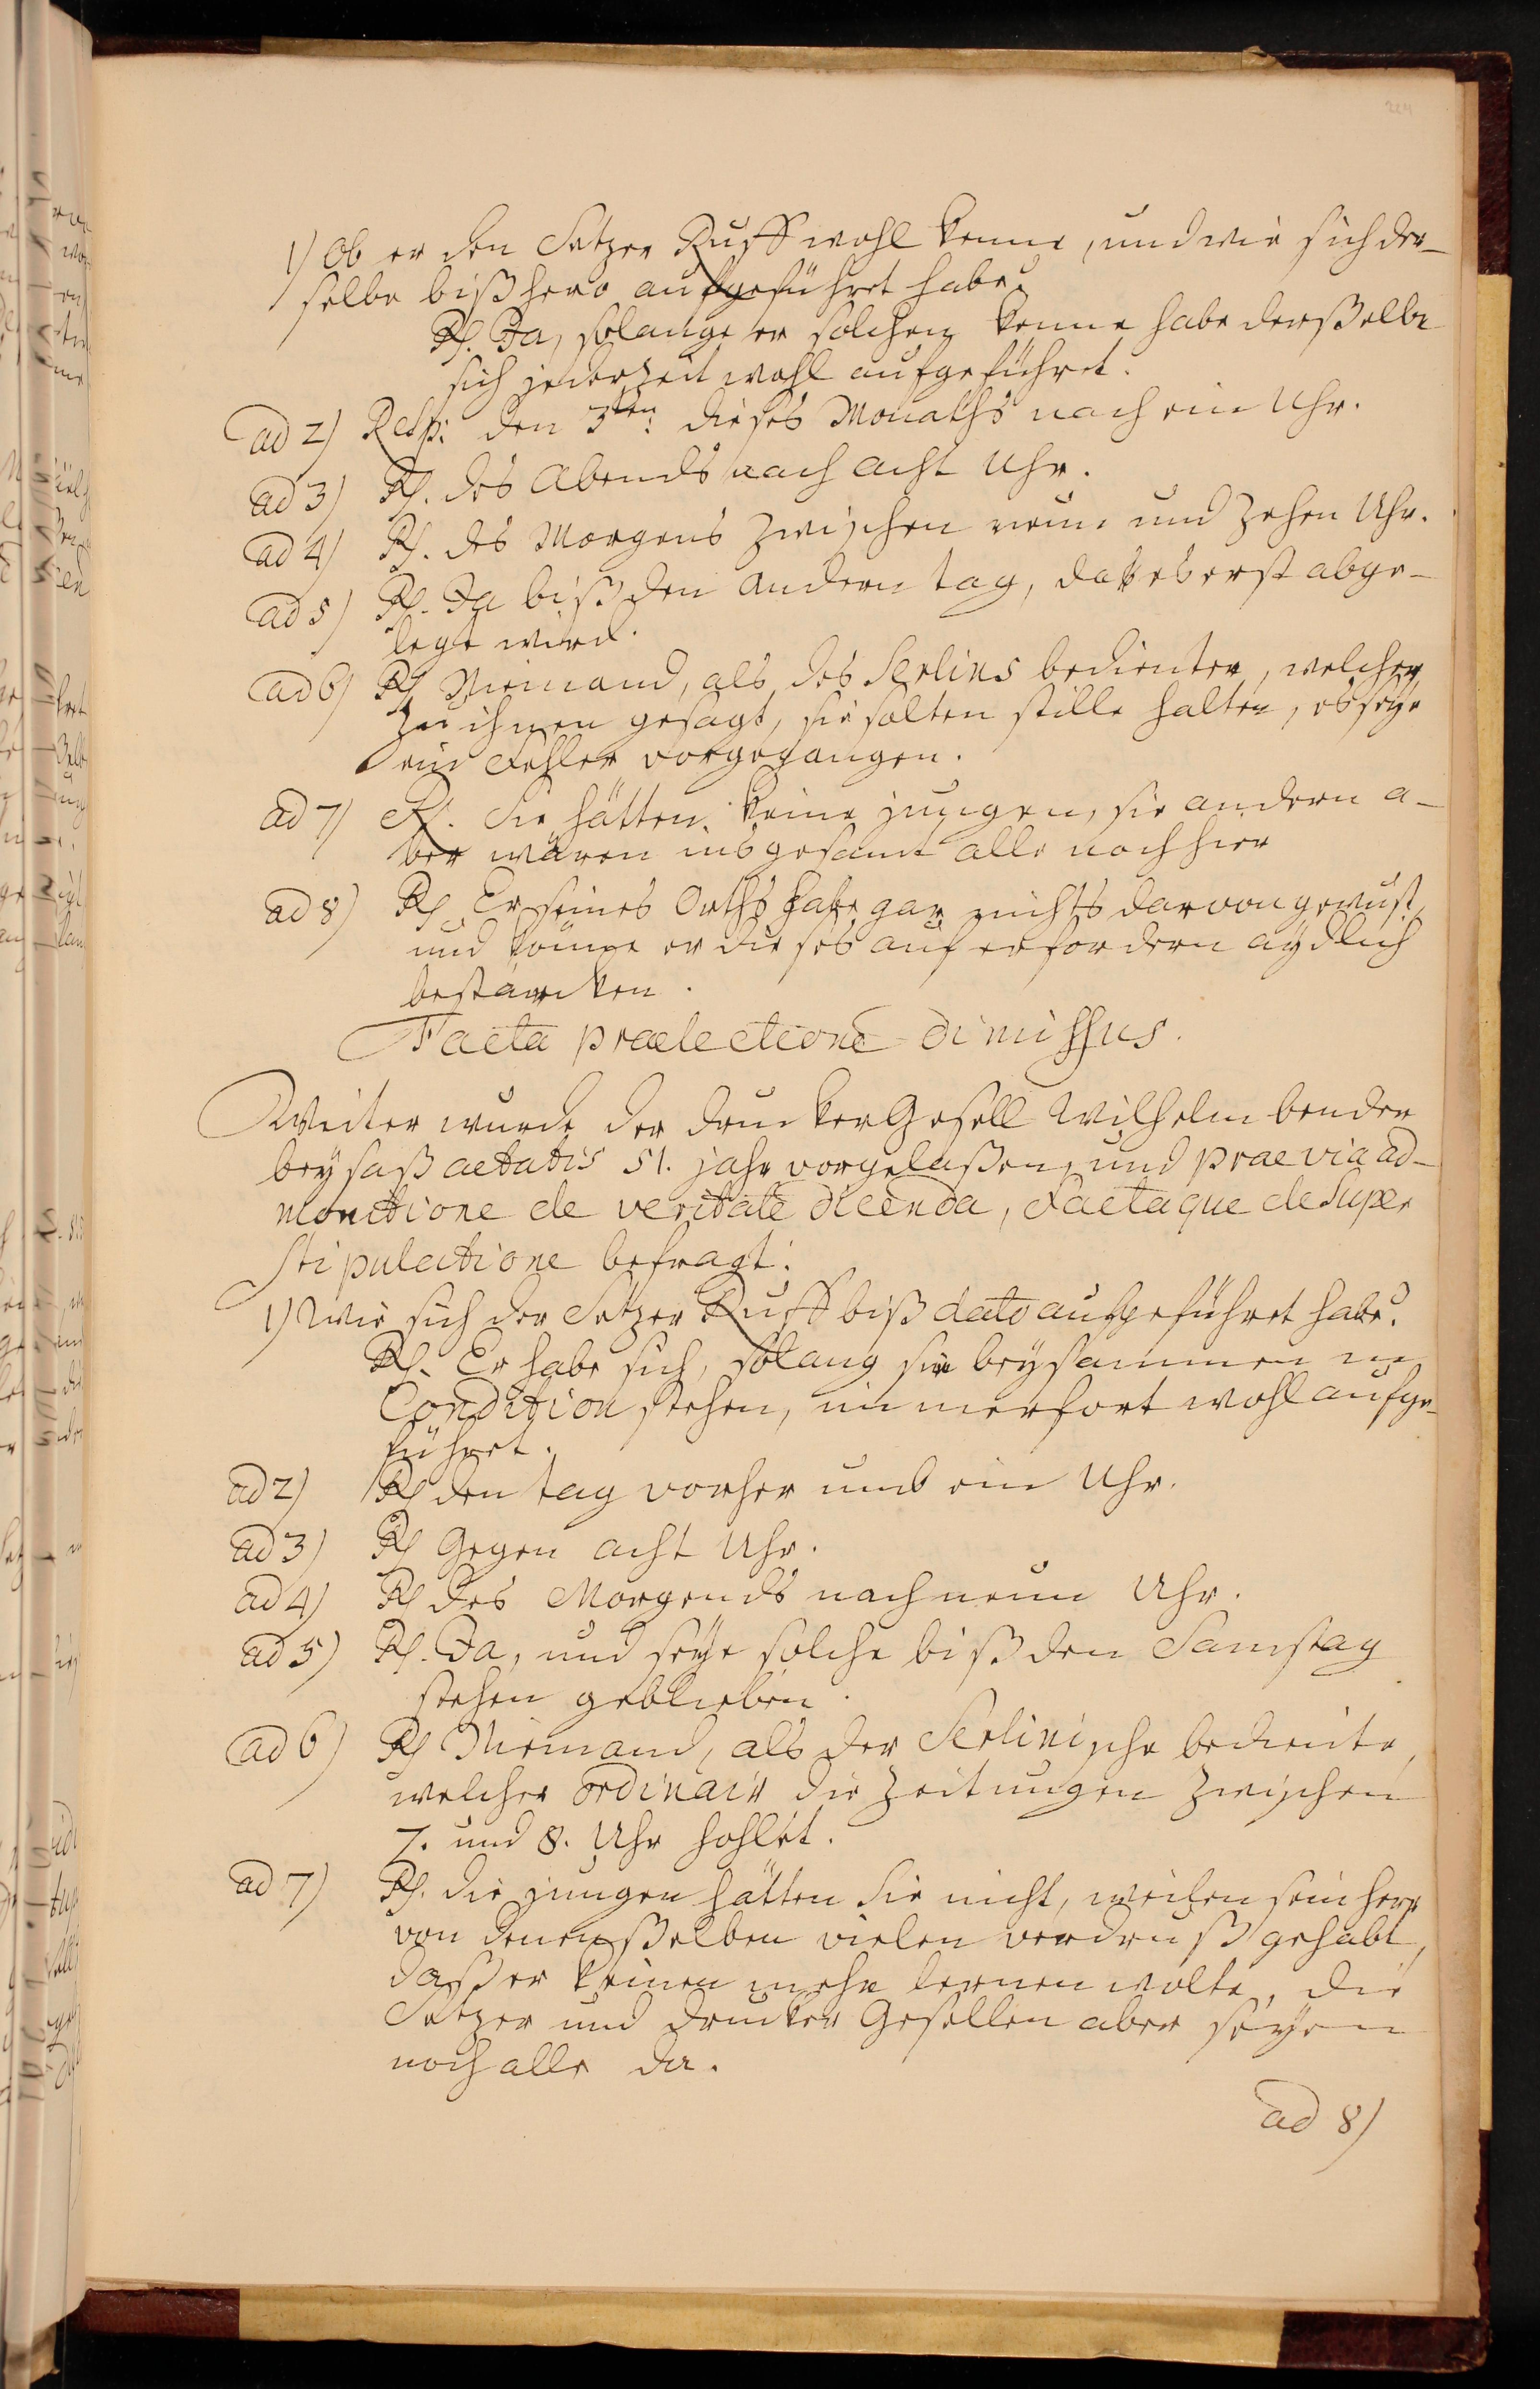 224
1) Ob er den Setzer Ruff wohl kenne, und wie sich der-
selbe bißhero aufgeführet habe?
Rs. Ja, solange er solchen kenne habe derßelbe
sich jederzeit wohl aufgeführet.
ad 2) Resp: den 3ten: dieses Monaths nach ein Uhr.
ad 3) Rs. des Abends nach acht Uhr.
ad 4) Rs. des Morgens zwischen neun und zehen Uhr.
ad 5) Rs. Ja biß den andern tag, da es erst abge-
legt wird.
ad 6) Rs Niemand, als des Serlins bedienter, welcher
zu ihnen gesagt, sie solten stille halten, es seye
ein Fehler vorgegangen.
ad 7) Rs. Sie hätten keine jungen, die andern a-
ber wären insgesamt alle noch hier
ad 8) Rs Er seines Orths habe gar nichts darvon gewust,
und könne er dieses auf erfordern aydlich
bestärcken.
Facta praelectione dimissus.
Weiter wurde der drucker Gesell Wilhelm bender
beysaß aetatis 51. jahr vorgelaßen, und praevia ad-
monitione de veritate dicenda, factaque desuper
stipulatione befragt:
1) Wie sich der Setzer Ruff biß dato aufgeführet habe?
Rs. Er habe sich, solang sie beysammen in
Condition stehen, immerfort wohl aufge-
führet.
ad 2) Rs den tag vorher umb ein Uhr.
ad 3) Rs Gegen acht Uhr.
ad 4) Rs des Morgends nach neun Uhr.
ad 5) Rs. Ja, und seye solche biß den Samstag
stehen geblieben.
ad 6) Rs Niemand, als der Serlinische bediente,
welcher ordinair die Zeitungen zwischen
7. und 8. Uhr hohlet.
ad 7) Rs. die jungen hätten Sie nicht, weilen sein herr
von denenßelben vielen verdruß gehabt,
daß er keinen mehr lernen wolte, die
Setzer und drucker Gesellen aber seyen
noch alle da.
ad 8)